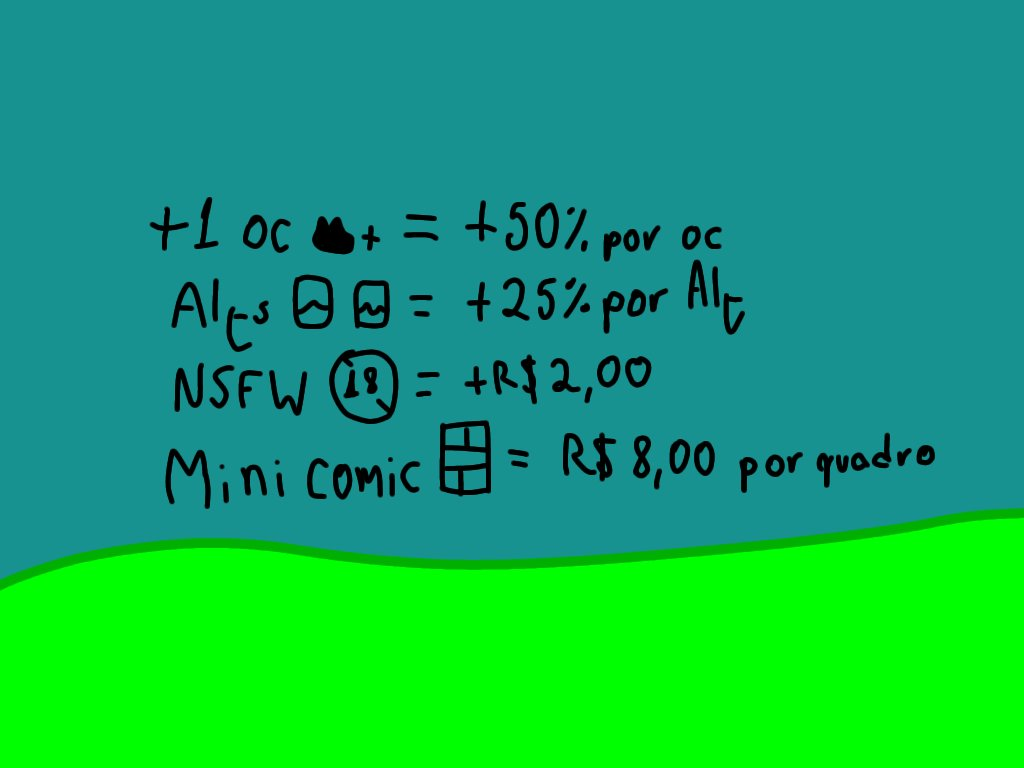 +1 oc + = +50% por oc
Alts = +25% por Alt
NSFW 18 = +R$2,00
Mini comic = R$ 8,00 por quadro